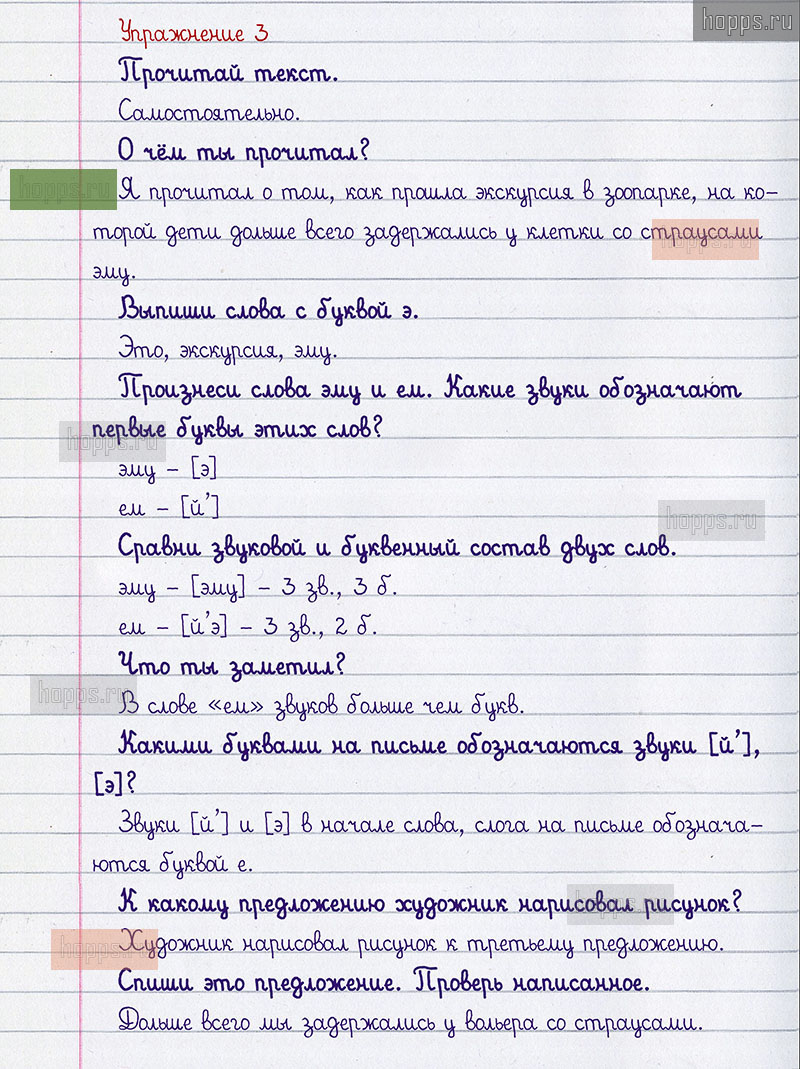 hopps.ru
Упражнение 3
Прочитай текст.
Самостоятельно.
О чём ты прочитал?
hopps.ru
Я прочитал о том, как прошла экскурсия в зоопарке, на ко-
торой дети дольше всего задержались у клетки со страусами
hopps.ru
эму.
Выпиши слова с буквой э.
Это, экскурсия, эму.
Произнеси слова эму и ем. Какие звуки обозначают
первые буквы этих слов?
hopps.ru
эму – [э]
ем – [й’]
hopps.ru
Сравни звуковой и буквенный состав двух слов.
эму – [эму] – 3 зв., 3 б.
ем – [й’э] – 3 зв., 2 б.
Что ты заметил?
hopps.ru
В слове «ем» звуков больше чем букв.
Какими буквами на письме обозначаются звуки [й’],
[э]?
Звуки [й’] и [э] в начале слова, слога на письме обознача-
ются буквой е.
К какому предложению художник нарисовал рисунок?
hopps.ru
Художник нарисовал рисунок к третьему предложению.
hopps.ru
Спиши это предложение. Проверь написанное.
Дольше всего мы задержались у вольера со страусами.